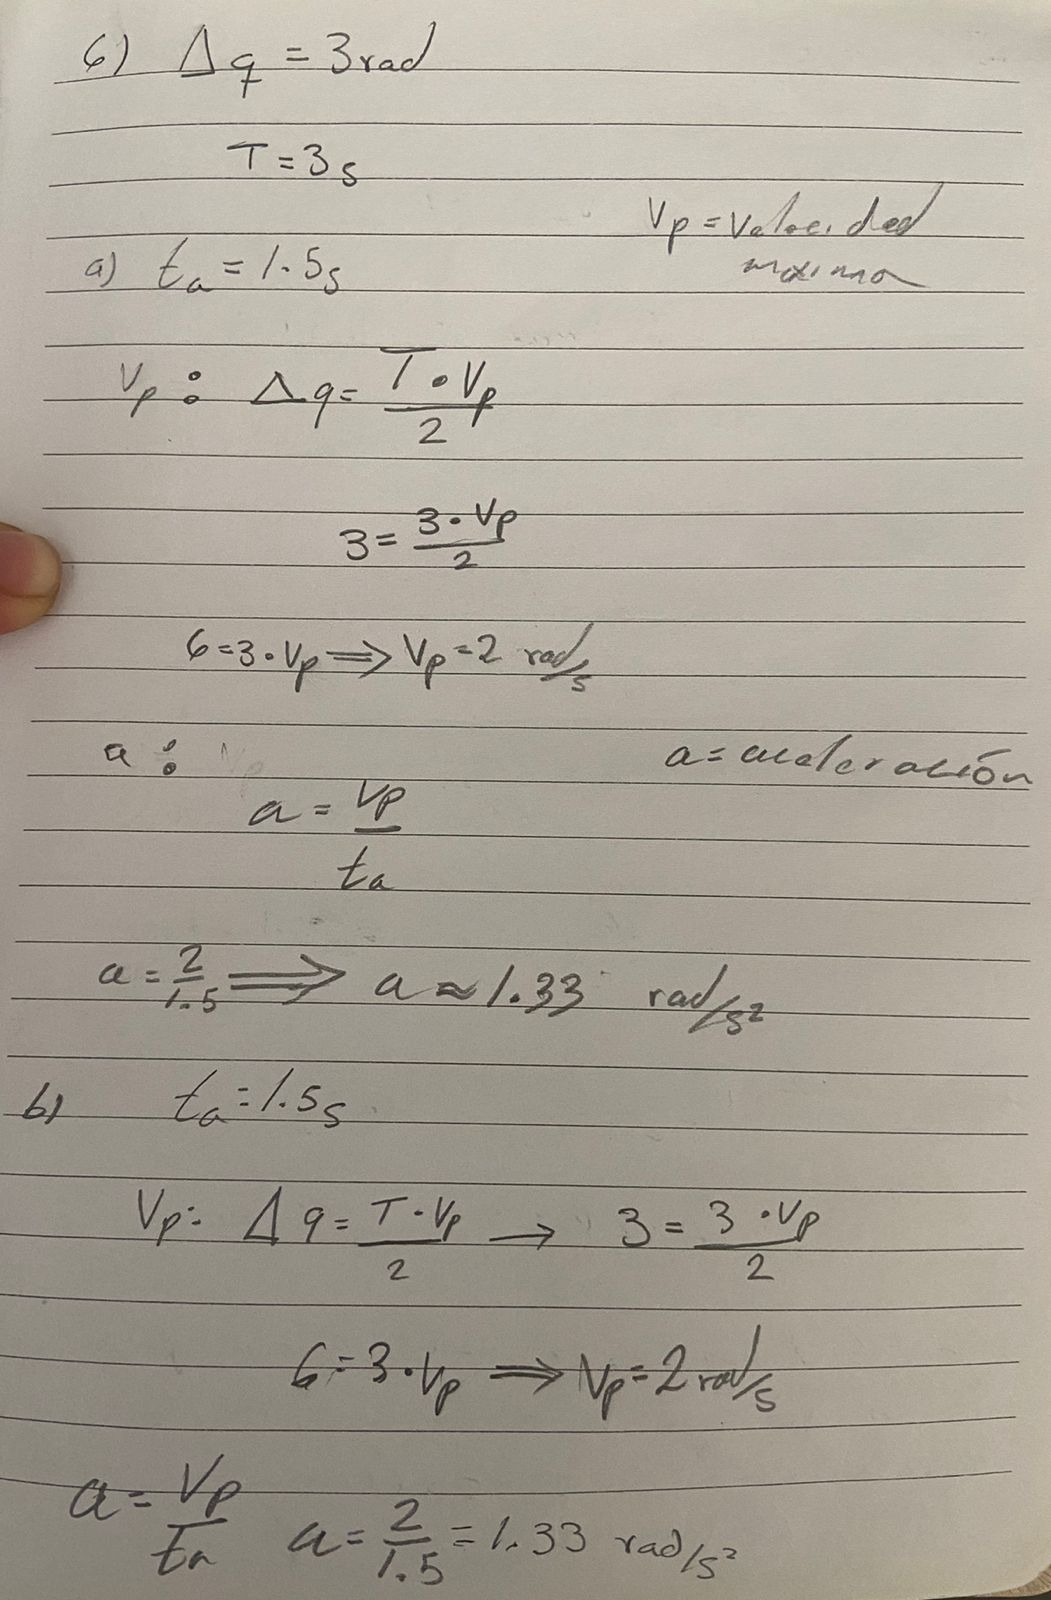 6) Δq = 3rad
T = 3s
Vp = Velocidad
máxima
a) ta = 1.5s
Vp : Δq = T • Vp / 2
3 = 3 • Vp / 2
6 = 3 • Vp ⟹ Vp = 2 rad/s
a : a = aceleración
a = Vp / ta
a = 2 / 1.5 ⟹ a ≈ 1.33 rad/s²
b) ta = 1.5s
Vp: Δq = T • Vp / 2 → 3 = 3 • Vp / 2
6 = 3 • Vp ⟹ Vp = 2 rad/s
a = Vp / ta a = 2 / 1.5 = 1.33 rad/s²